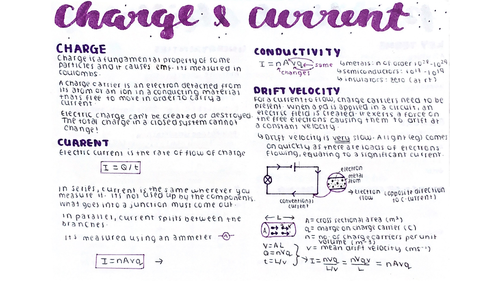 charge & current
CHARGE
Charge is a fundamental property of some
particles and it causes ems. its measured in
coulombs.
A charge carrier is an electron detached from
its atom or an ion in a conducting material
thats free to move in order to carry a
current.
Electric charge can't be created or destroyed.
The total charge in a closed system cannot
change!
CURRENT
Electric current is the rate of flow of charge
I = Q/t
In series, current is the same wherever you
measure it. its not used up by the components.
What goes into a junction must come out.
In parallel, current splits between the
branches.
Its measured using an ammeter A
I = nAvq →
CONDUCTIVITY
I = nAvq same
changes
↳metals: n of order 10²⁸-10²⁹
↳semiconductors:
↳insulators: zero (at rt)
DRIFT VELOCITY
For a current to flow, charge carriers need to be
present. When a pd is applied in a circuit, an
electric field is created. It exerts a force on
the free electrons causing them to drift at
a constant velocity.
↳Drift velocity is very slow. A light (eg) comes
on quickly as there are loads of electrons
flowing, equating to a significant current.
electron
metal
atom
↳ Electron flow (opposite direction
to C. current)
conventional
current
L
A = cross sectional area (m²)
q = charge on charge carrier (C)
n = no. of charge carriers per unit
volume (m⁻³)
v = mean drift velocity (ms⁻¹)
V = AL
Q = nqV
t = L/v
I = nVq / L/v = nVqv / L = nAvq